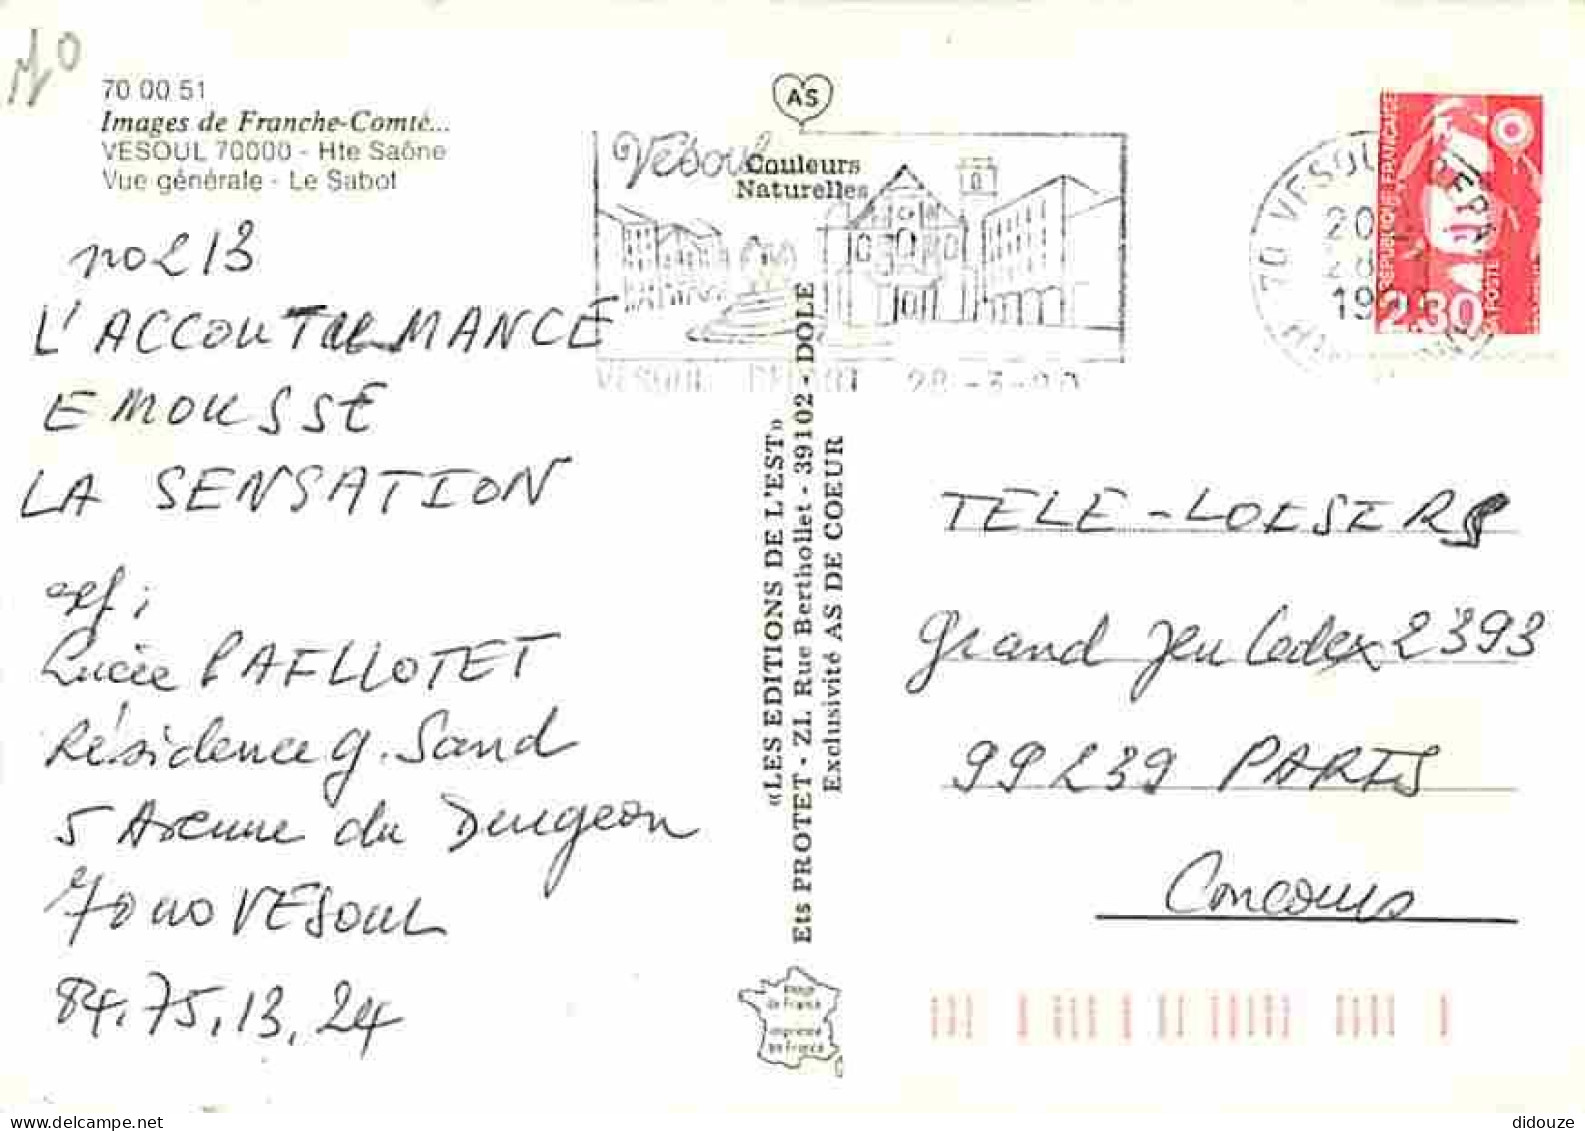 70
70 00 51
Images de Franche-Comté...
VESOUL 70000 - Hte Saône
Vue générale - Le Sabot
no 213
L'ACCOUTUMANCE
EMOUSSE
LA SENSATION
exp;
Lucie PAILLOTET
Résidence G. Sand
5 Avenue du Durgeon
70000 VESOUL
84.75.13.24
AS
Vesoul
Couleurs
Naturelles
VESOUL DEPART 28-3-90
«LES EDITIONS DE L'EST»
Ets PROTET - Z.I. Rue Berthollet - 39102 - DOLE
Exclusivité AS DE COEUR
Image
de France
imprimé
en France
70 VESOUL
20
28
19
REPUBLIQUE FRANÇAISE
LA POSTE
2.30
TELE-LOISIRS
Grand Jeu Cedex 2393
99239 PARIS
Concours
didouze